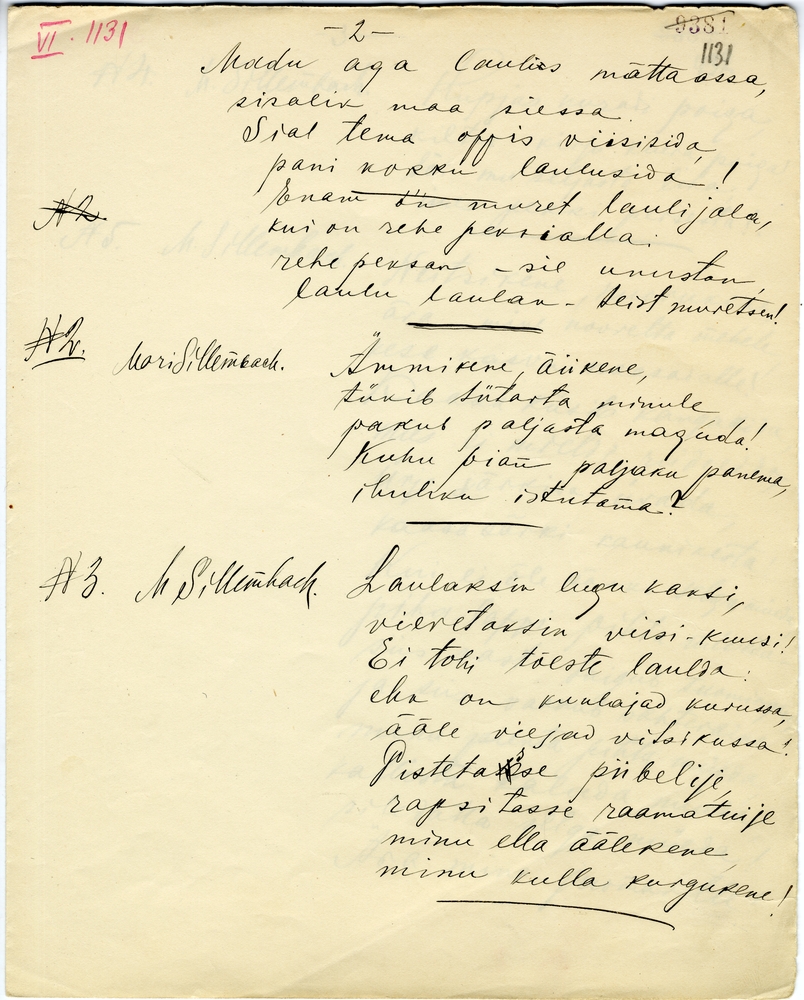 VI. 1131
-2-
9381
1131
Madu aga lauliis mättaassa,
sisalik maa siessa.
Sial tema oppis viisisida,
pani kokku laulusida!
Enam on muret laulijala,
kui on rehe peksialla:
rehe peksan - sie unustan,
laulu laulan - teist muretsen!
N 2.
N 2.
Mari Sillembach.
Ämmikene, äiikene,
tükib tütarta minule
pakub paljasta magada!
Kuhu pian paljaku panema,
ihuliku istutama?
N 3.
M Sillembach.
Laulaksin lugu kaksi,
vieretaksin viisi-kuusi!
Ei tohi tõeste laulda:
ehk on kuulajad kurussa,
ääle viejad vitsikussa!
Pistetasse piibelije,
rapsitasse raamatuije
minu ella äälekene,
minu kulla kurgukene!